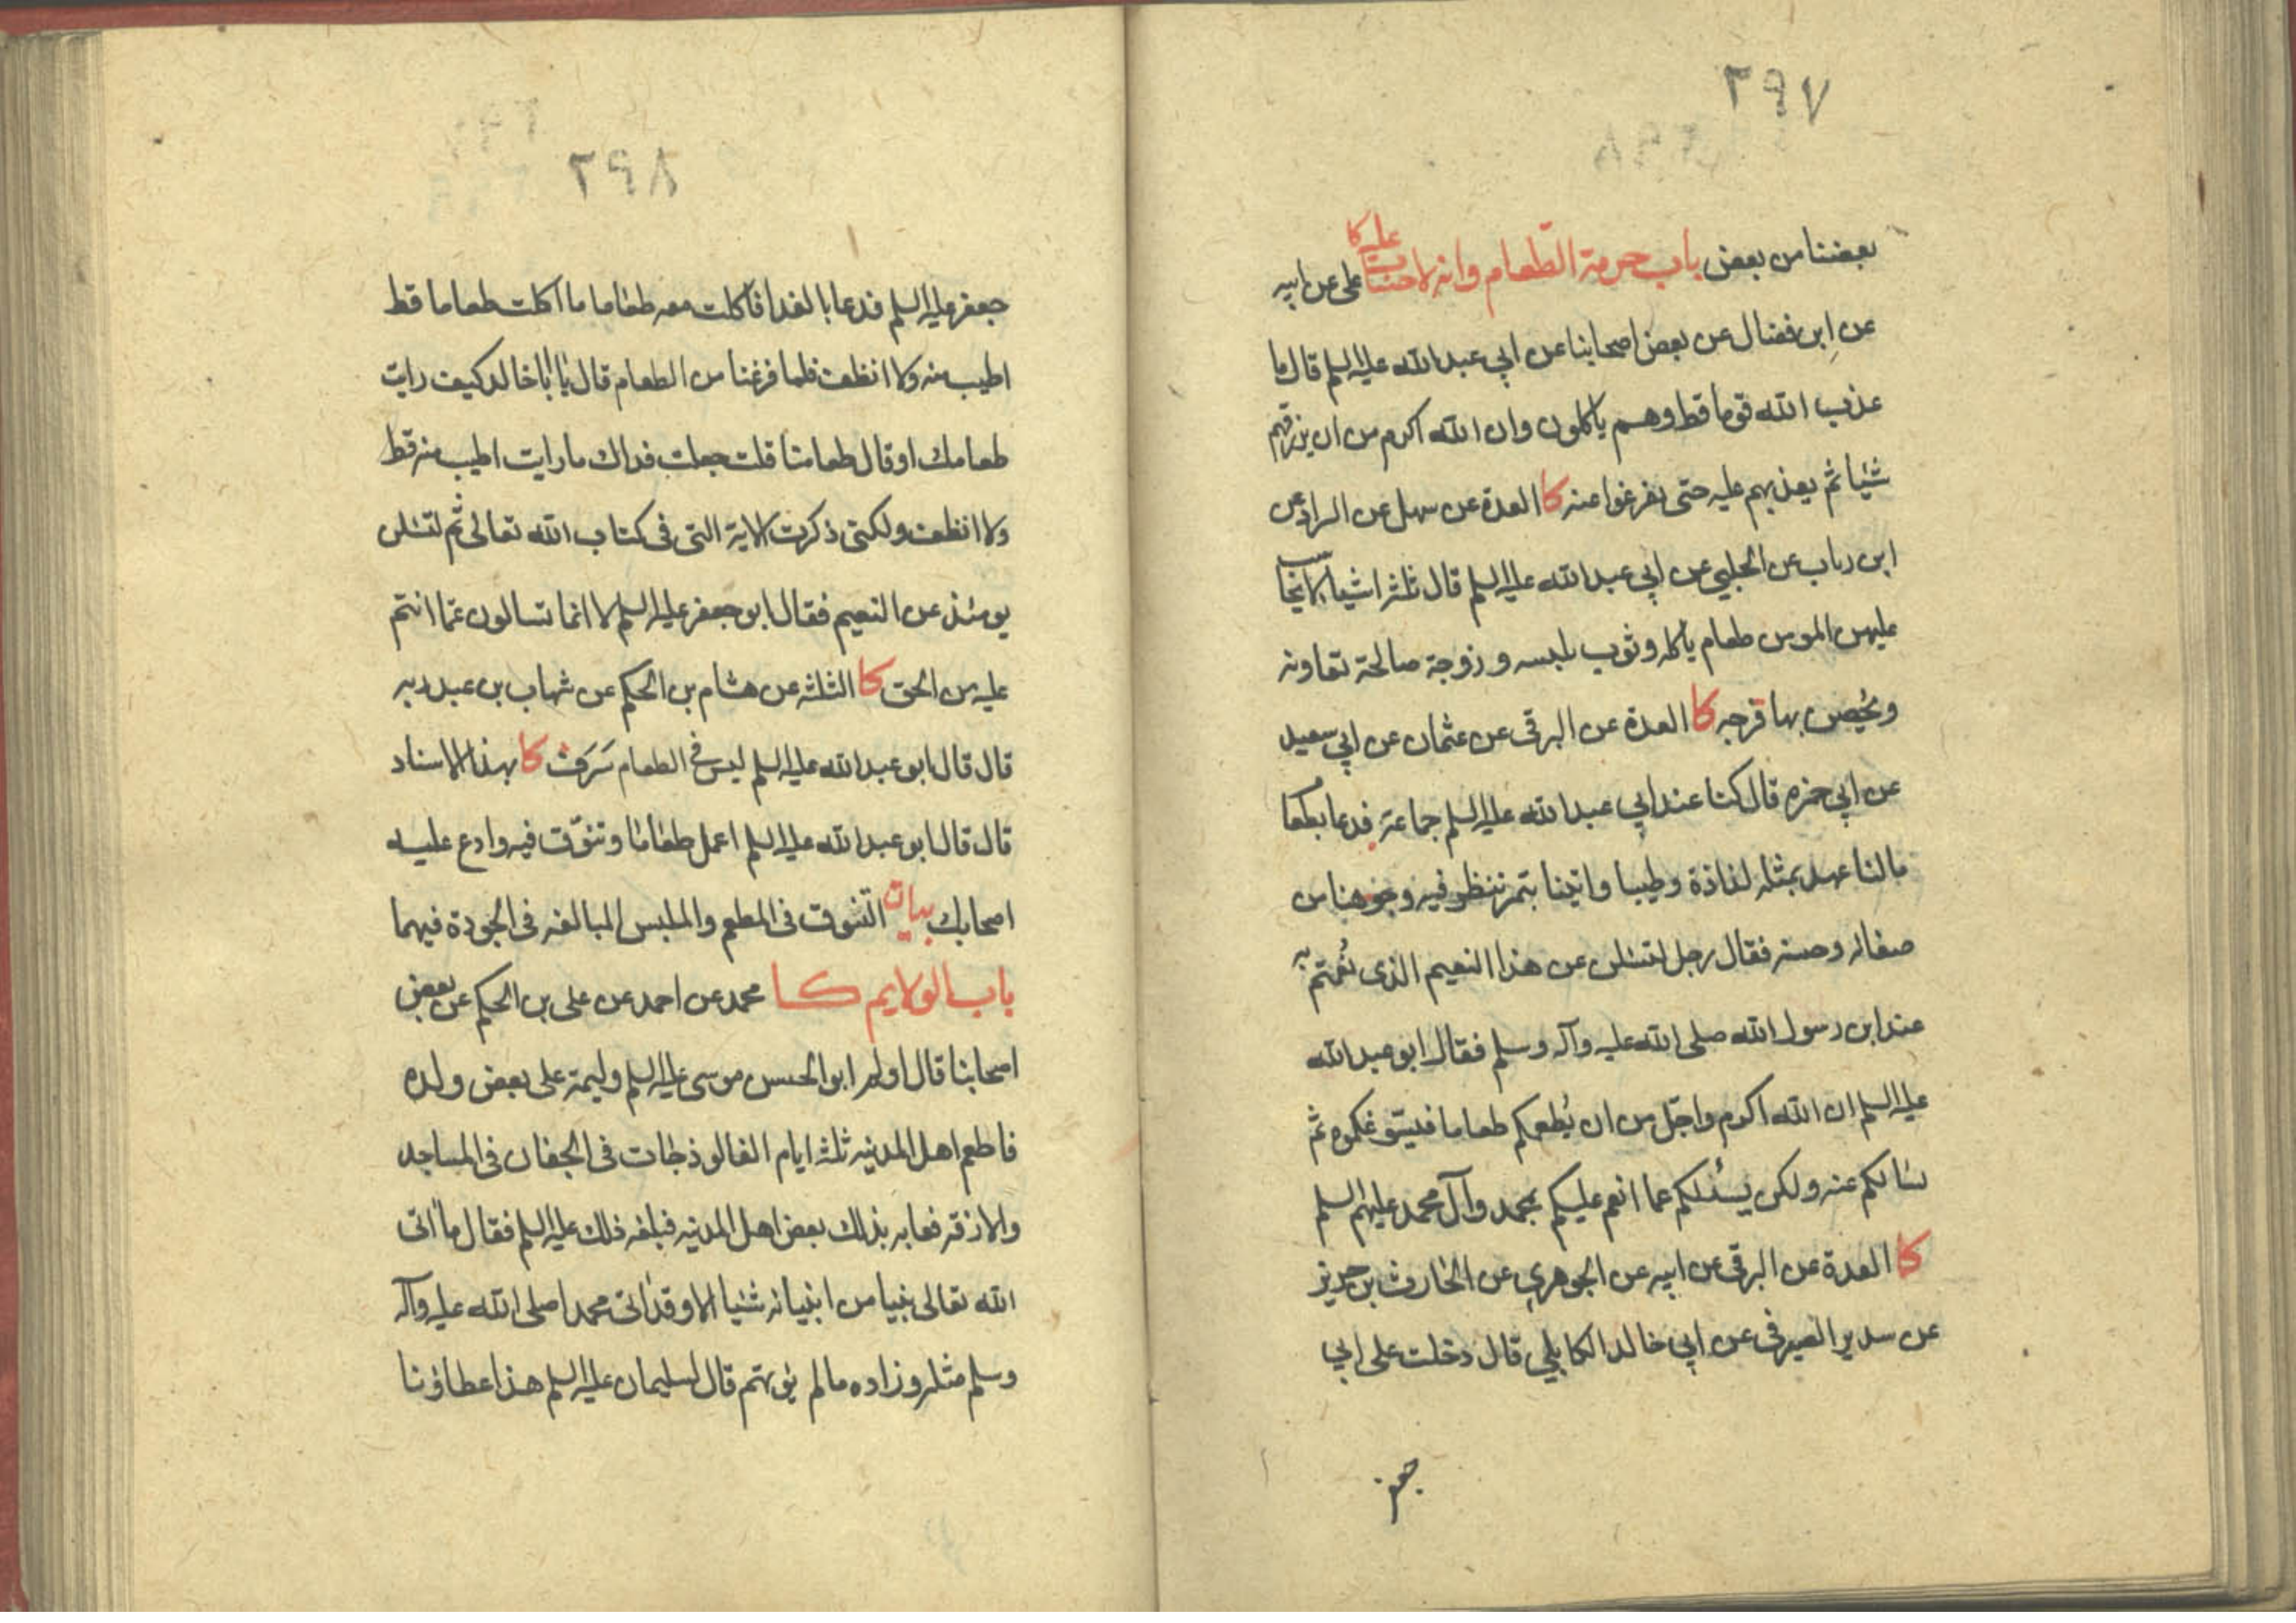 ٢٩٧
بعضنا من بعض باب حرمة الطّعام وانه لا حساب عليه كا علي عن ابيه
عن ابن فضال عن بعض اصحابنا عن ابي عبد الله عليه السلم قال ما
عذب الله قوما قط وهم ياكلون وان الله اكرم من ان يرزقهم
شيئا ثم يعذبهم عليه حتى يفرغوا عنه كا العدة عن سهل عن السراد عن
ابن رباب عن الحلبي عن ابي عبد الله عليه السلم قال ثلثة اشياء لا يحاسب
عليهن المومن طعام ياكله وثوب يلبسه وزوجة صالحة تعاونه
ويحصن بها فرجه كا العدة عن البرقى عن عثمان عن ابي سعيد
عن ابي حمزه قال كنا عند ابي عبد الله عليه السلم جماعة فدعا بطعام
مالنا عهد بمثله لذاذة وطيبا واتينا بتمر ننظر فيه وجوهنا من
صفائه وحسنه فقال رجل لتسئلن عن هذا النعيم الذى نُعمتم به
عند ابن رسول الله صلى الله عليه وآله وسلم فقال ابو عبد الله
عليه السلم ان الله اكرم واجلّ من ان يُطعمكم طعاما فيسوّغكموه ثم
يسالكم عنه ولكن يسئلكم عما انعم عليكم بمحمد وآل محمد عليهم السلم
كا العدة عن البرقى عن ابيه عن الجوهري عن الحارث بن حريز
عن سدير الصيرفى عن ابي خالد الكابلي قال دخلت على ابي
جعفر
٢٩٨
جعفر عليه السلم فدعا بالغدا فاكلت معه طعاما ما اكلت طعاما قط
اطيب منه ولا انظف فلما فرغنا من الطعام قال يا ابا خالد كيف رايت
طعامك او قال طعامنا قلت جعلت فداك ما رايت اطيب منه قط
ولا انظف ولكنى ذكرت الاية التى فى كتاب الله تعالى ثم لتسئلن
يومئذ عن النعيم فقال ابو جعفر عليه السلم لا انما تسالون عمّا انتم
عليه من الحق كا الثلثه عن هشام بن الحكم عن شهاب بن عبد ربه
قال قال ابو عبد الله عليه السلم ليس فى الطعام سَرَف كا بهذا الاسناد
قال قال ابو عبد الله عليه السلم اعمل طعاما وتنوّق فيه وادع عليه
اصحابك بيان التنوق فى المطعم والملبس المبالغه فى الجودة فيهما
باب الولايم كا محمد عن احمد عن على بن الحكم عن بعض
اصحابنا قال اولم ابو الحسن موسى عليه السلم وليمة على بعض ولده
فاطعم اهل المدينه ثلثه ايام الفالوذجات فى الجفان فى المساجد
والازقه فعابه بذلك بعض اهل المدينه فبلغه ذلك عليه السلم فقال ما اتى
الله تعالى نبيا من انبيائه شيئا الا وقد اتى محمدا صلى الله عليه وآله
وسلم مثله وزاده ما لم يؤتهم قال لسليمان عليه السلم هذا عطاؤنا